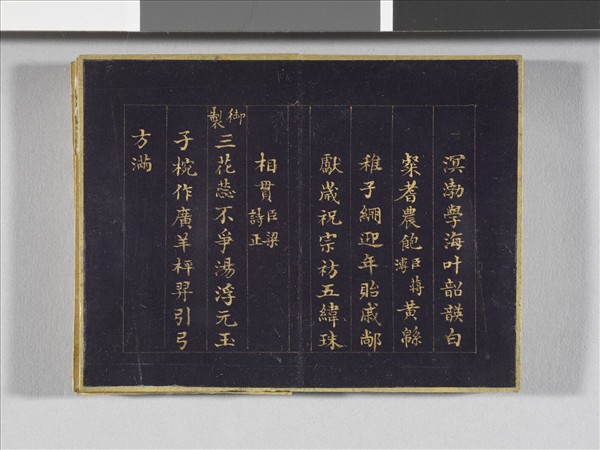 溟渤學海叶韶韺白
粲耆農飽臣蔣溥黃緜
稚子綳迎年貽戚
獻歲祝宗祊五緯珠
相貫臣梁詩正
御製三花蕊不爭湯浮元玉
子椀作廣羊枰羿引弓
方滿